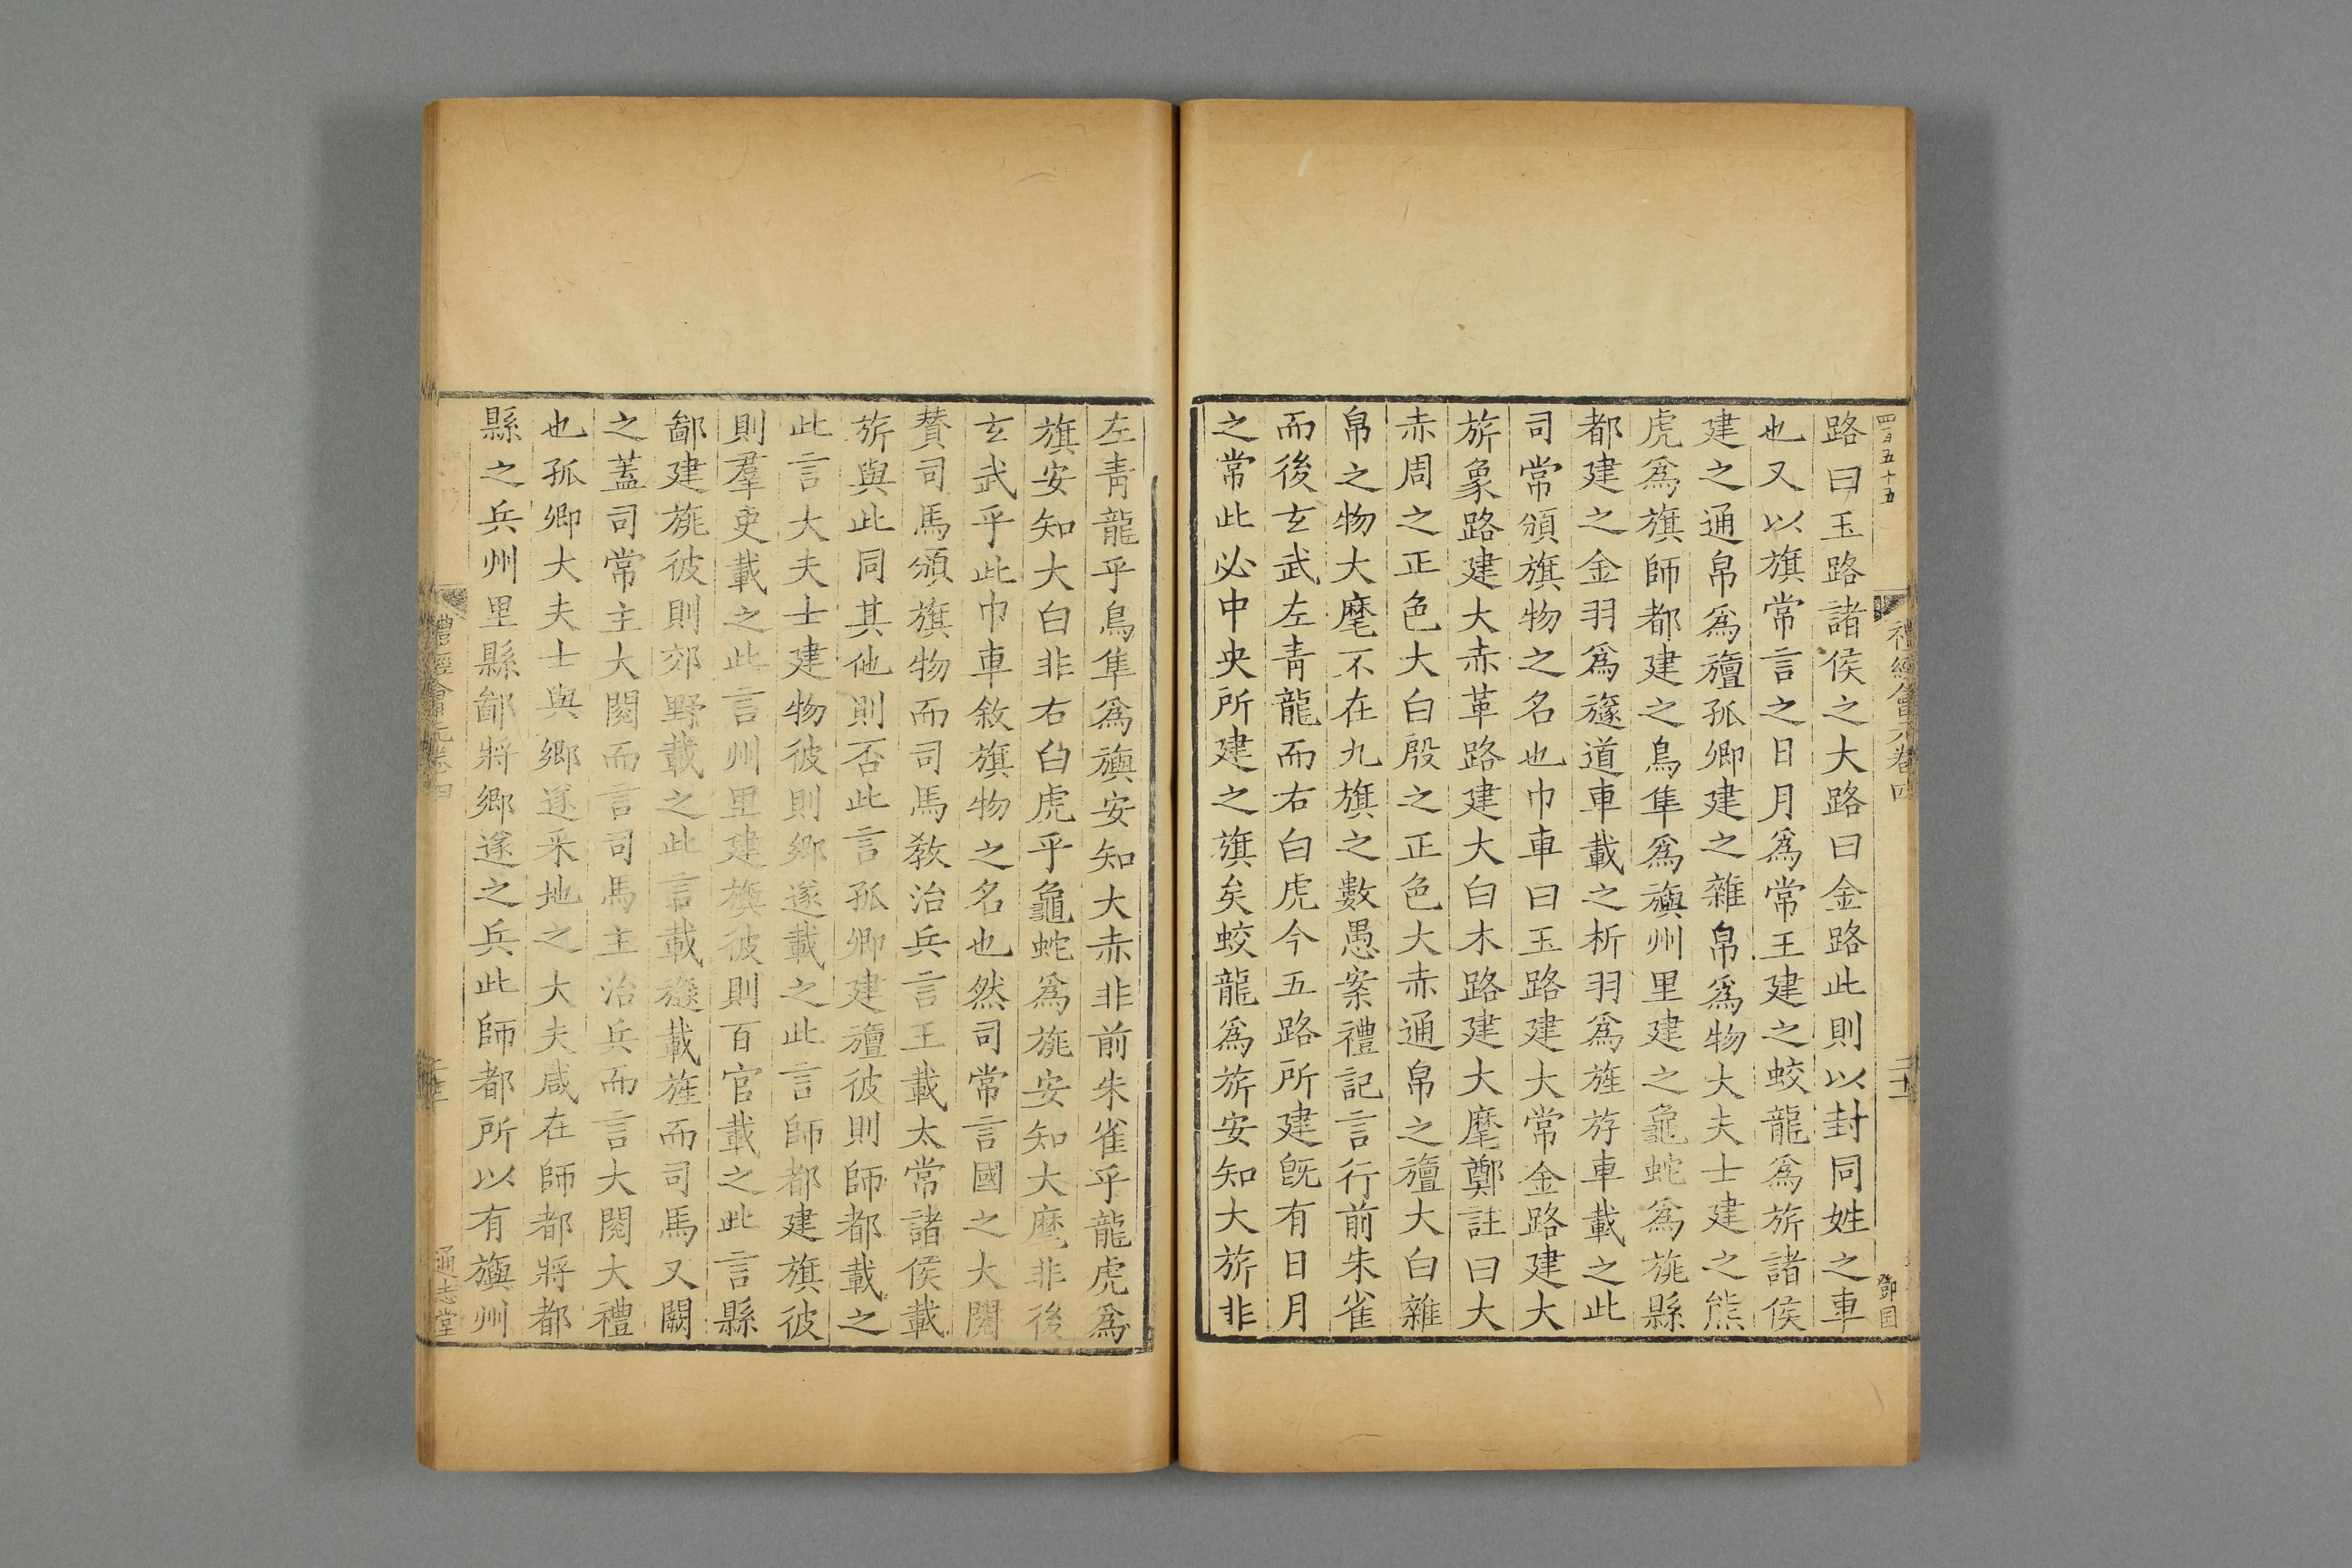 四百五十五
禮經會元卷四
鄧國
路曰玉路諸侯之大路曰金路此則以封同姓之車
也又以旗常言之日月爲常王建之蛟龍爲旂諸侯
建之通帛爲旜孤卿建之雜帛爲物大夫士建之熊
虎爲旗師都建之鳥隼爲旟州里建之龜蛇爲旐縣
都建之金羽爲旞道車載之析羽爲旌斿車載之此
司常頒旗物之名也巾車曰玉路建大常金路建大
旂象路建大赤革路建大白木路建大麾鄭註曰大
赤周之正色大白殷之正色大赤通帛之旜大白雜
帛之物大麾不在九旗之數愚案禮記言行前朱雀
而後玄武左青龍而右白虎今五路所建旣有日月
之常此必中央所建之旗矣蛟龍爲旂安知大旂非
左青龍乎鳥隼爲旟安知大赤非前朱雀乎龍虎爲
旗安知大白非右白虎乎龜蛇爲旐安知大麾非後
玄武乎此巾車敘旗物之名也然司常言國之大閱
賛司馬頒旗物而司馬敎治兵言王載太常諸侯載
旂與此同其他則否此言孤卿建旜彼則師都載之
此言大夫士建物彼則鄉遂載之此言師都建旗彼
則羣吏載之此言州里建旟彼則百官載之此言縣
鄙建旐彼則郊野載之此言載旞載旌而司馬又闕
之蓋司常主大閱而言司馬主治兵而言大閱大禮
也孤卿大夫士與鄉遂采地之大夫咸在師都將都
縣之兵州里縣鄙將鄉遂之兵此師都所以有旟州
禮經會元卷四
通志堂